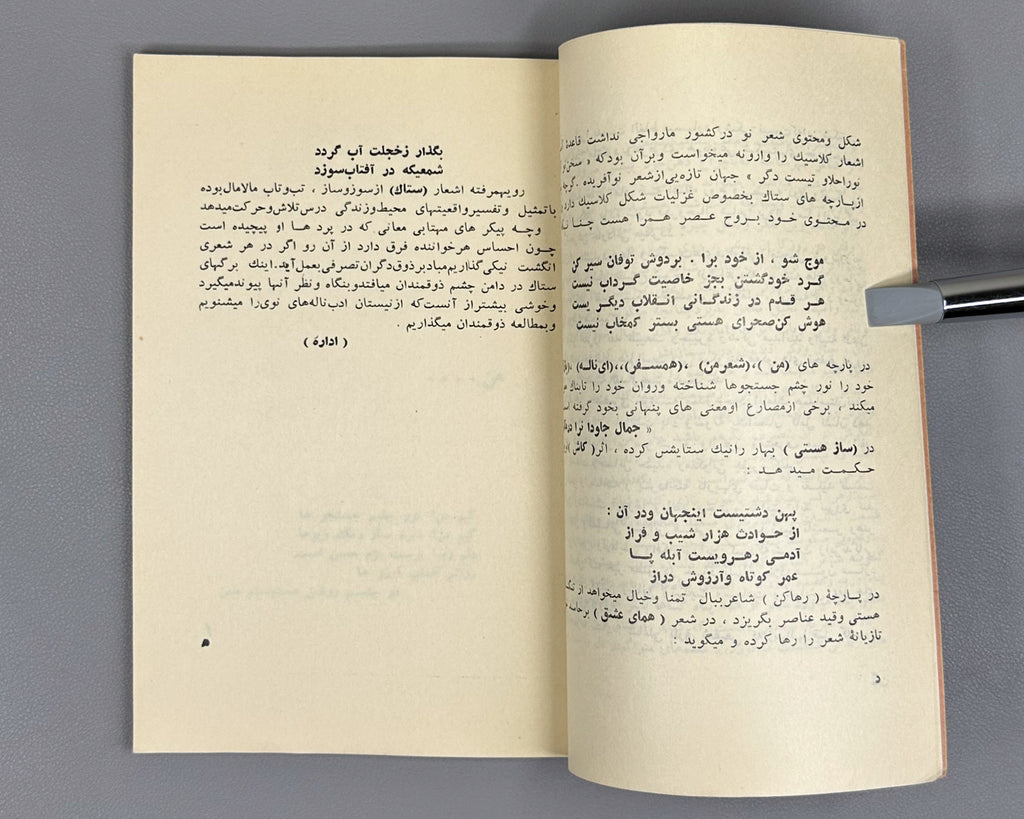 شکل ومحتوی شعر نو درکشور مارواجی نداشت قاعدهٔ
اشعار کلاسیك را وازونه میخواست وبرآن بودکه «
نوراحلاو تیست دگر » جهان تازه‌یی‌ازشعر نوآفریده .گرچه
ازپارچه های ستاك بخصوص غزلیات شکل کلاسیك دارد
در محتوی خود بروح عصر همرا هست چنا
موج شو ، از خود برا . بردوش توفان سیر کن
گرد خودگشتن بجز خاصیت گرداب نیست
هر قدم در زندگانی انقلاب دیگر یست
هوش کن‌صحرای هستی بستر کمخاب نیست
در پارچه های (من )،(شعرمن) ،(همسفر)،،(ای‌ناله)
خود را نور چشم جستجوها شناخته وروان خود را تابناك
میکند ، برخی ازمصارع اومعنی های پنهانی بخود گرفته
« جمال جاودا نرا
در (ساز هستی ) بهار رانیك ستایش کرده ، اثر( کاش )
حکمت مید هد :
پهن دشتیست اینجهان ودر آن :
از حوادث هزار شیب و فراز
آدمی رهرویست آبله پا
عمر کوتاه وآرزوش دراز
در پارچهٔ ( رهاکن ) شاعرببال تمنا وخیال میخواهد از
هستی وقید عناصر بگریزد ، در شعر ( همای عشق )
تازیانهٔ شعر را رها کرده و میگوید :
د
بگذار زخجلت آب گردد
شمعیکه در آفتاب‌سوزد
رویهمرفته اشعار (ستاك) ازسوزوساز ، تب‌وتاب مالامال‌بوده
باتمثیل وتفسیرواقعیتهای محیط‌وزندگی درس‌تلاش‌وحرکت‌میدهد
وچه پیکر های مهتابی معانی که در پرد ها او پیچیده است
چون احساس هرخواننده فرق دارد از آن رو اگر در هر شعری
انگشت نیکی‌گذاریم‌مبادبرذوق‌دگران‌تصرفی‌بعمل‌آید.اینك برگهای
ستاك در دامن چشم ذوقمندان میافتدوبنگاه ونظر آنها پیوندمیگیرد
وخوشی بیشتراز آنست‌که ازنیستان ادب‌ناله‌های نوی‌را میشنویم
وبمطالعه ذوقمندان میگذاریم .
( ادارهٔ )
ه